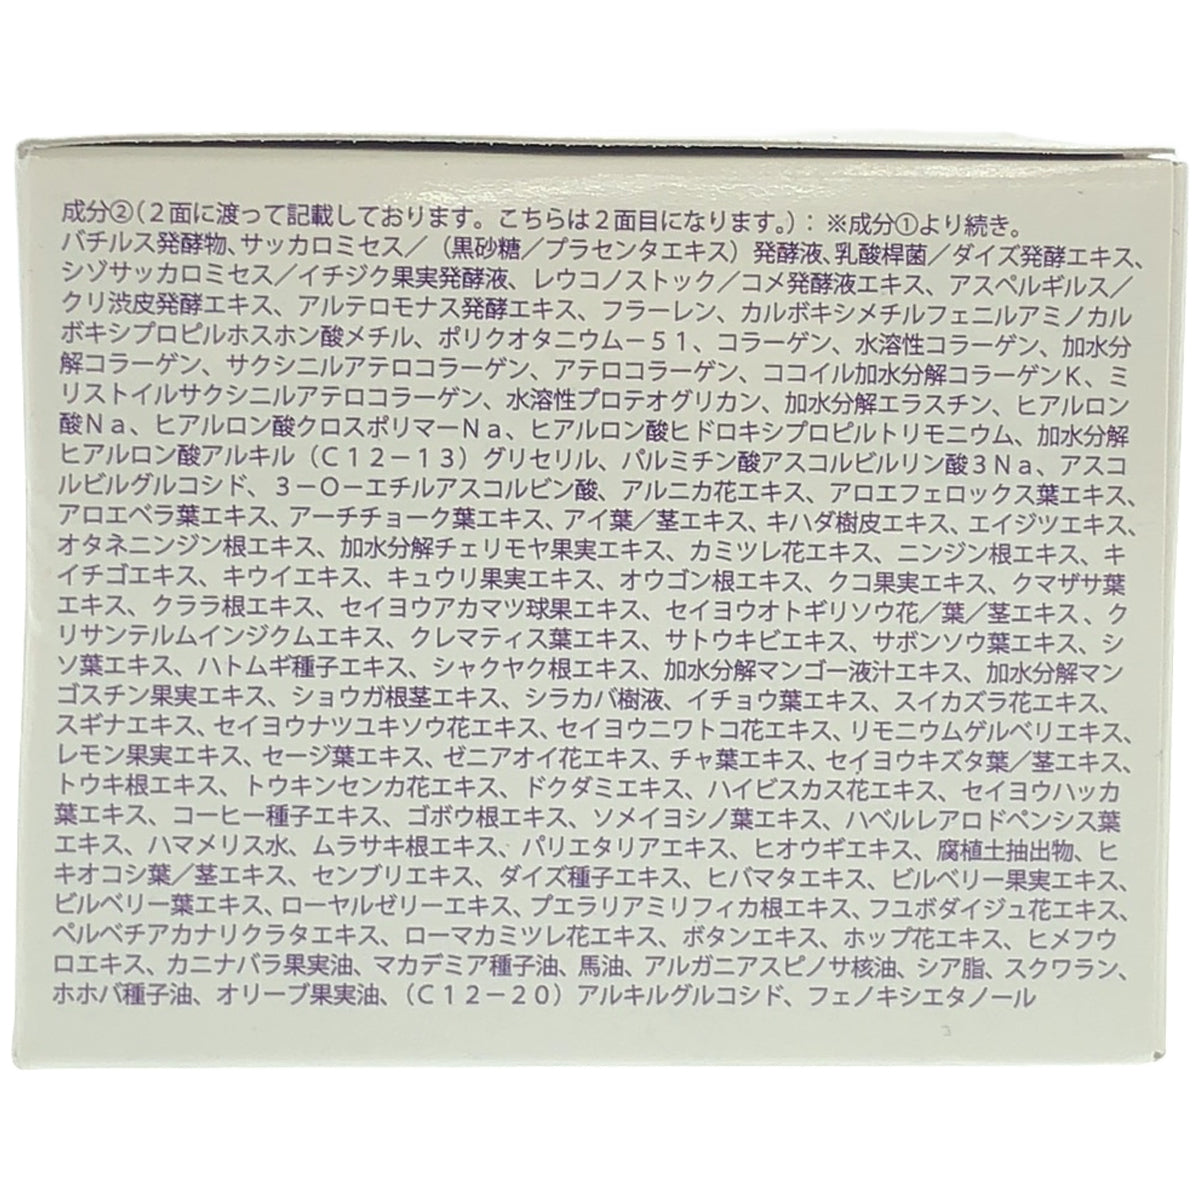 成分②（２面に渡って記載しております。こちらは２面目になります。）：※成分①より続き。
バチルス発酵物、サッカロミセス／（黒砂糖／プラセンタエキス）発酵液、乳酸桿菌／ダイズ発酵エキス、
シゾサッカロミセス／イチジク果実発酵液、レウコノストック／コメ発酵液エキス、アスペルギルス／
クリ渋皮発酵エキス、アルテロモナス発酵エキス、フラーレン、カルボキシメチルフェニルアミノカル
ボキシプロピルホスホン酸メチル、ポリクオタニウム－５１、コラーゲン、水溶性コラーゲン、加水分
解コラーゲン、サクシニルアテロコラーゲン、アテロコラーゲン、ココイル加水分解コラーゲンＫ、ミ
リストイルサクシニルアテロコラーゲン、水溶性プロテオグリカン、加水分解エラスチン、ヒアルロン
酸Ｎａ、ヒアルロン酸クロスポリマーＮａ、ヒアルロン酸ヒドロキシプロピルトリモニウム、加水分解
ヒアルロン酸アルキル（Ｃ１２－１３）グリセリル、パルミチン酸アスコルビルリン酸３Ｎａ、アスコ
ルビルグルコシド、３－Ｏ－エチルアスコルビン酸、アルニカ花エキス、アロエフェロックス葉エキス、
アロエベラ葉エキス、アーチチョーク葉エキス、アイ葉／茎エキス、キハダ樹皮エキス、エイジツエキス、
オタネニンジン根エキス、加水分解チェリモヤ果実エキス、カミツレ花エキス、ニンジン根エキス、キ
イチゴエキス、キウイエキス、キュウリ果実エキス、オウゴン根エキス、クコ果実エキス、クマザサ葉
エキス、クララ根エキス、セイヨウアカマツ球果エキス、セイヨウオトギリソウ花／葉／茎エキス、ク
リサンテルムインジクムエキス、クレマティス葉エキス、サトウキビエキス、サボンソウ葉エキス、シ
ソ葉エキス、ハトムギ種子エキス、シャクヤク根エキス、加水分解マンゴー液汁エキス、加水分解マン
ゴスチン果実エキス、ショウガ根茎エキス、シラカバ樹液、イチョウ葉エキス、スイカズラ花エキス、
スギナエキス、セイヨウナツユキソウ花エキス、セイヨウニワトコ花エキス、リモニウムゲルベリエキス、
レモン果実エキス、セージ葉エキス、ゼニアオイ花エキス、チャ葉エキス、セイヨウキズタ葉／茎エキス、
トウキ根エキス、トウキンセンカ花エキス、ドクダミエキス、ハイビスカス花エキス、セイヨウハッカ
葉エキス、コーヒー種子エキス、ゴボウ根エキス、ソメイヨシノ葉エキス、ハベルレアロドペンシス葉
エキス、ハマメリス水、ムラサキ根エキス、パリエタリアエキス、ヒオウギエキス、腐植土抽出物、ヒ
キオコシ葉／茎エキス、センブリエキス、ダイズ種子エキス、ヒバマタエキス、ビルベリー果実エキス、
ビルベリー葉エキス、ローヤルゼリーエキス、プエラリアミリフィカ根エキス、フユボダイジュ花エキス、
ペルベチアカナリクラタエキス、ローマカミツレ花エキス、ボタンエキス、ホップ花エキス、ヒメフウ
ロエキス、カニナバラ果実油、マカデミア種子油、馬油、アルガニアスピノサ核油、シア脂、スクワラン、
ホホバ種子油、オリーブ果実油、（Ｃ１２－２０）アルキルグルコシド、フェノキシエタノール